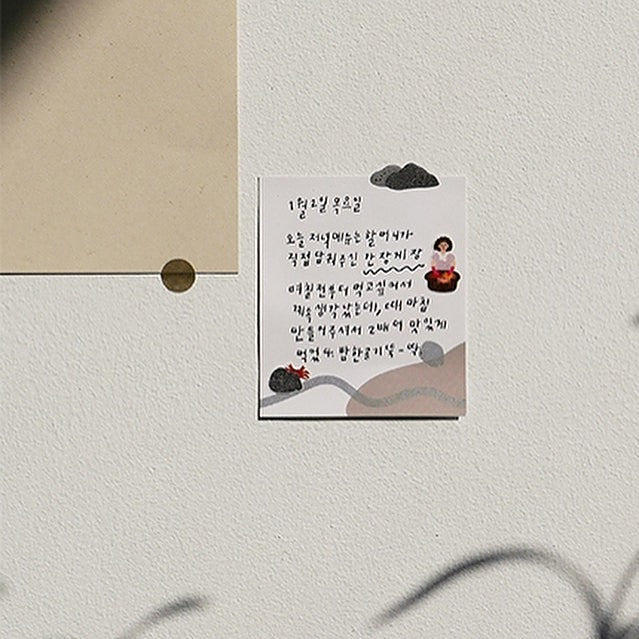 1월 2일 목요일
오늘 저녁메뉴는 할머니가
직접 담궈주신 간장게장
며칠전부터 먹고싶어서
계속 생각났는데, 때마침
만들어주셔서 2배 더 맛있게
먹었네 밥한공기 뚝-딱